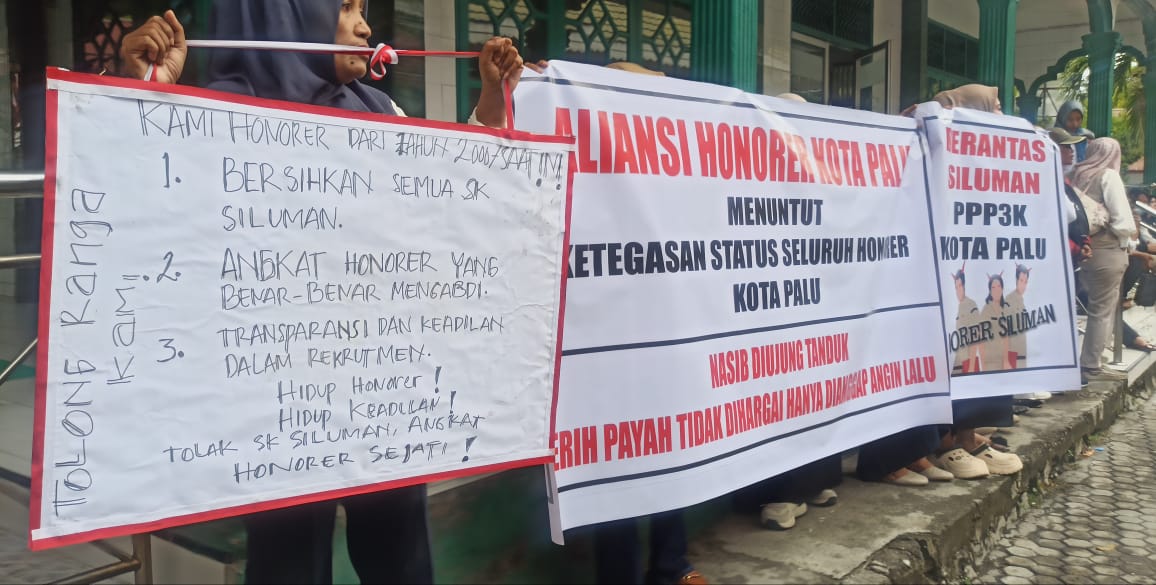 KAMI HONORER DARI TAHUN 2000/SAAT INI !!
1. BERSIHKAN SEMUA SK
SILUMAN.
2. ANGKAT HONORER YANG
BENAR-BENAR MENGABDI.
3. TRANSPARANSI DAN KEADILAN
DALAM REKRUTMEN.
HIDUP HONORER!
HIDUP KEADILAN!
TOLAK SK SILUMAN, ANGKAT
HONORER SEJATI!
TOLONG Ranga
Kami
ALIANSI HONORER KOTA PALU
MENUNTUT
KETEGASAN STATUS SELURUH HONORER
KOTA PALU
NASIB DIUJUNG TANDUK
JERIH PAYAH TIDAK DIHARGAI HANYA DIANGGAP ANGIN LALU
BERANTAS
SILUMAN
PPP3K
KOTA PALU
HONORER SILUMAN